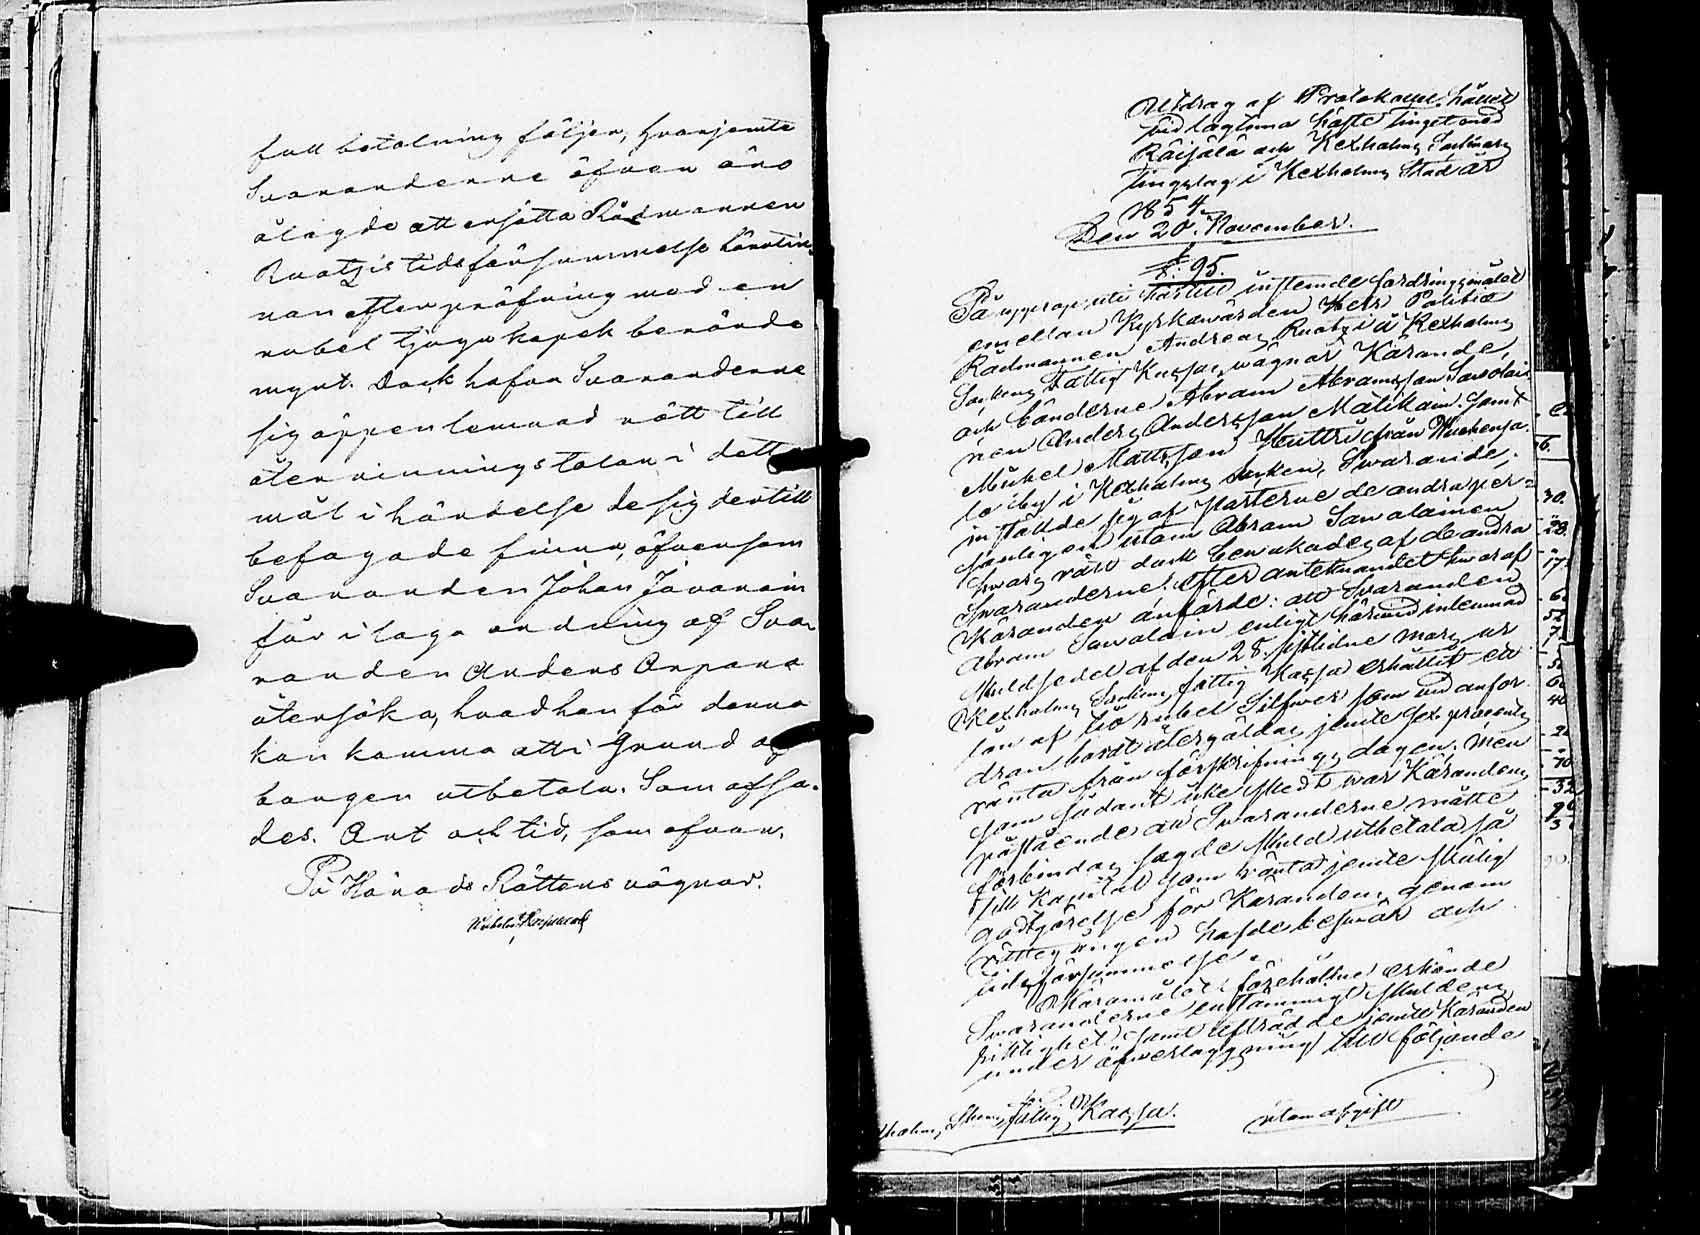 full betalning följer, hvarjemte
Svaranderne äfven äro
ålagde att ersätta Rådmannen
Ruatzis tidsförsummelse härutin-
nan efter pröfning med en
rubel tjugo kopek berörde
mynt. Dock hafva Svaranderne
sig öppen lemnad rätt till
återvinningstalan i detta
mål i händelse de sig dertill
befogade finna, äfvensom
Svaranden Johan Javanain
får i laga ordning af Sva-
randen Anders Orpana
återsöka, hvad han för denne
kan komma att i Grund af
borgen utbetala. Som afsa-
des. Ort och tid, som ofvan.
På Härads Rättens vägnar.
Utdrag af Protokollet, hållet
vid lagtima Höste Tinget med
Räisälä och Kexholms Socknars
Tingslag i Kexholms Stad år
1854.
Den 20. November.
§. 95.
På upprop uti härtill instemde fordringsmålet
emellan Kyrkovärden Herr Politie
Rådmannen Andreas Ruatzi å Kexholms
Sockens Fattig Kassas wägnar Kärande,
och bönderne Abram Abramsson Sawolai-
nen Anders Andersson Malikain samt
Mickel Mattsson Huttu från
by i Kexholms Socken, Swarande;
inställde sig af Parterne de andra per-
sonligen utom Abram Sawolainen
hwars rätt dock bewakades af de andra
Swaranderne. Efter antecknandet hwaraf
Käranden anförde: att Swaranden
Abram Sawolain enligt härwid inlemnad
Skuldsedel af den 28. sistlidne Mars ur
Kexholms Sockens fattig Kassa erhållit en
lån af tio rubel Silfwer som wid anfor-
dran bordt återgäldas jemte sex procents
ränta från förskrifnings dagen; men
som sådant icke skedt war Kärandens
påstående att Swaranderne måtte
förbindas sagde skuld utbetala så
till Kapital som ränta jemte skälig
godtgörelse för Kärandens genom
rättegången hafde beswär och
tidsförsummelse.
Käromålet förehållne erkände
Swaranderne enstämmigt skuldens
riktighet samt afträdde jemte Käranden
under öfwerläggning till följande
fattig Kassa.
utan afgift